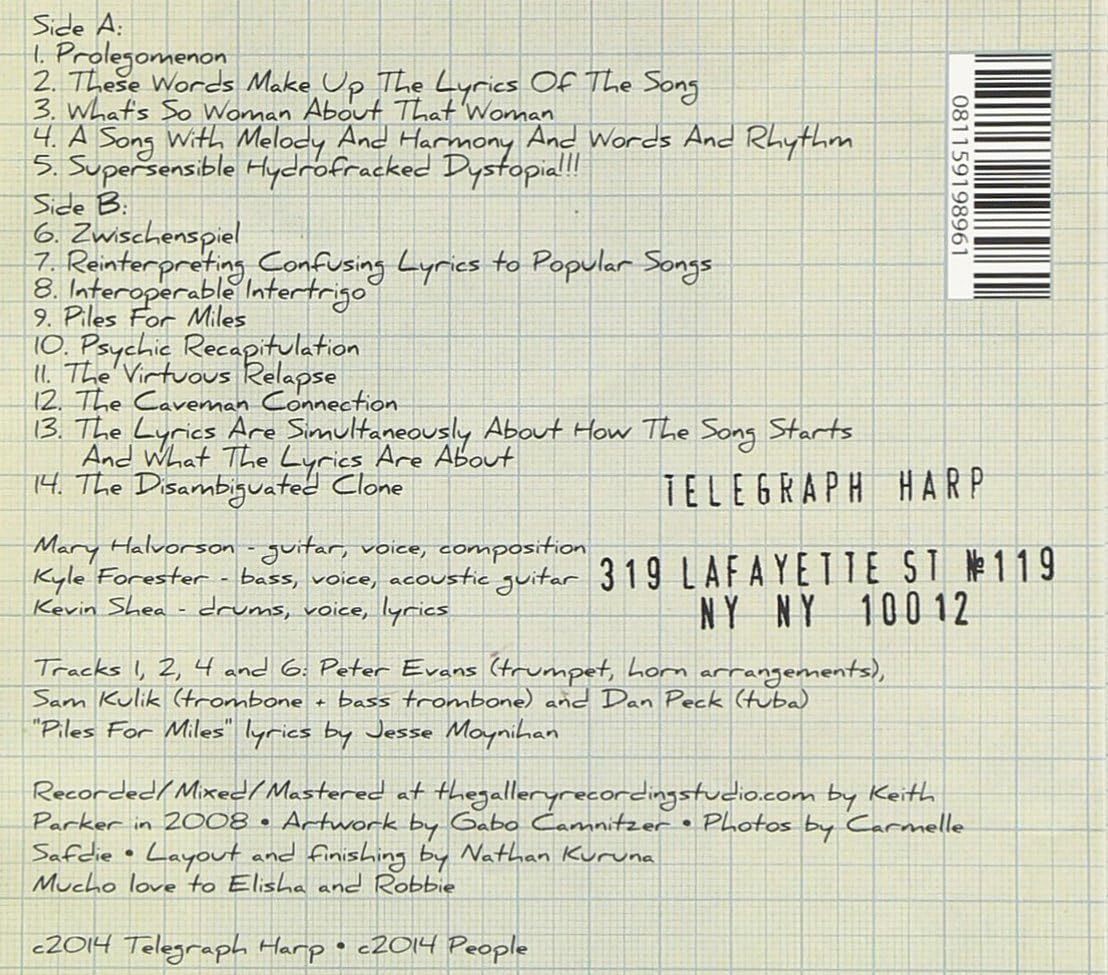 Side A:
1. Prolegomenon
2. These Words Make Up The Lyrics Of The Song
3. What's So Woman About That Woman
4. A Song With Melody And Harmony And Words And Rhythm
5. Supersensible Hydrofracked Dystopia!!!
Side B:
6. Zwischenspiel
7. Reinterpreting Confusing Lyrics to Popular Songs
8. Interoperable Intertrigo
9. Piles For Miles
10. Psychic Recapitulation
11. The Virtuous Relapse
12. The Caveman Connection
13. The Lyrics Are Simultaneously About How The Song Starts
And What The Lyrics Are About
14. The Disambiguated Clone
081159198961
TELEGRAPH HARP
319 LAFAYETTE ST №119
NY NY 10012
Mary Halvorson - guitar, voice, composition
Kyle Forester - bass, voice, acoustic guitar
Kevin Shea - drums, voice, lyrics
Tracks 1, 2, 4 and 6: Peter Evans (trumpet, horn arrangements),
Sam Kulik (trombone + bass trombone) and Dan Peck (tuba)
"Piles For Miles" lyrics by Jesse Moynihan
Recorded/Mixed/Mastered at thegalleryrecordingstudio.com by Keith
Parker in 2008 • Artwork by Gabo Camnitzer • Photos by Carmelle
Safdie • Layout and finishing by Nathan Kuruna
Mucho love to Elisha and Robbie
c2014 Telegraph Harp • c2014 People